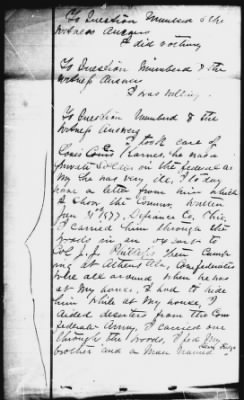 To Question Numberd 6 the
witness Answers
I did nothing
To Question Numberd 7 the
witness Answers
I was willing.
To Question Numberd 8 the
witness Answers
I took care of
Louis Karnes, he was a
private Soldier in the federal ar
my he was very ill, I to day
have a letter from him which
I show the Comr, written
Jan 1877, Defiance Co, Ohio,
I carried him through the
woods in an ox cart to
Col J. J. Phillips then Camp
ing at Athens Ala, Confederates
were all around when he was
at my house, I had to hide
him while at my house, I
aided deserters from the Con
federate Army, I carried one
through the woods, I hid my
brother and a man named